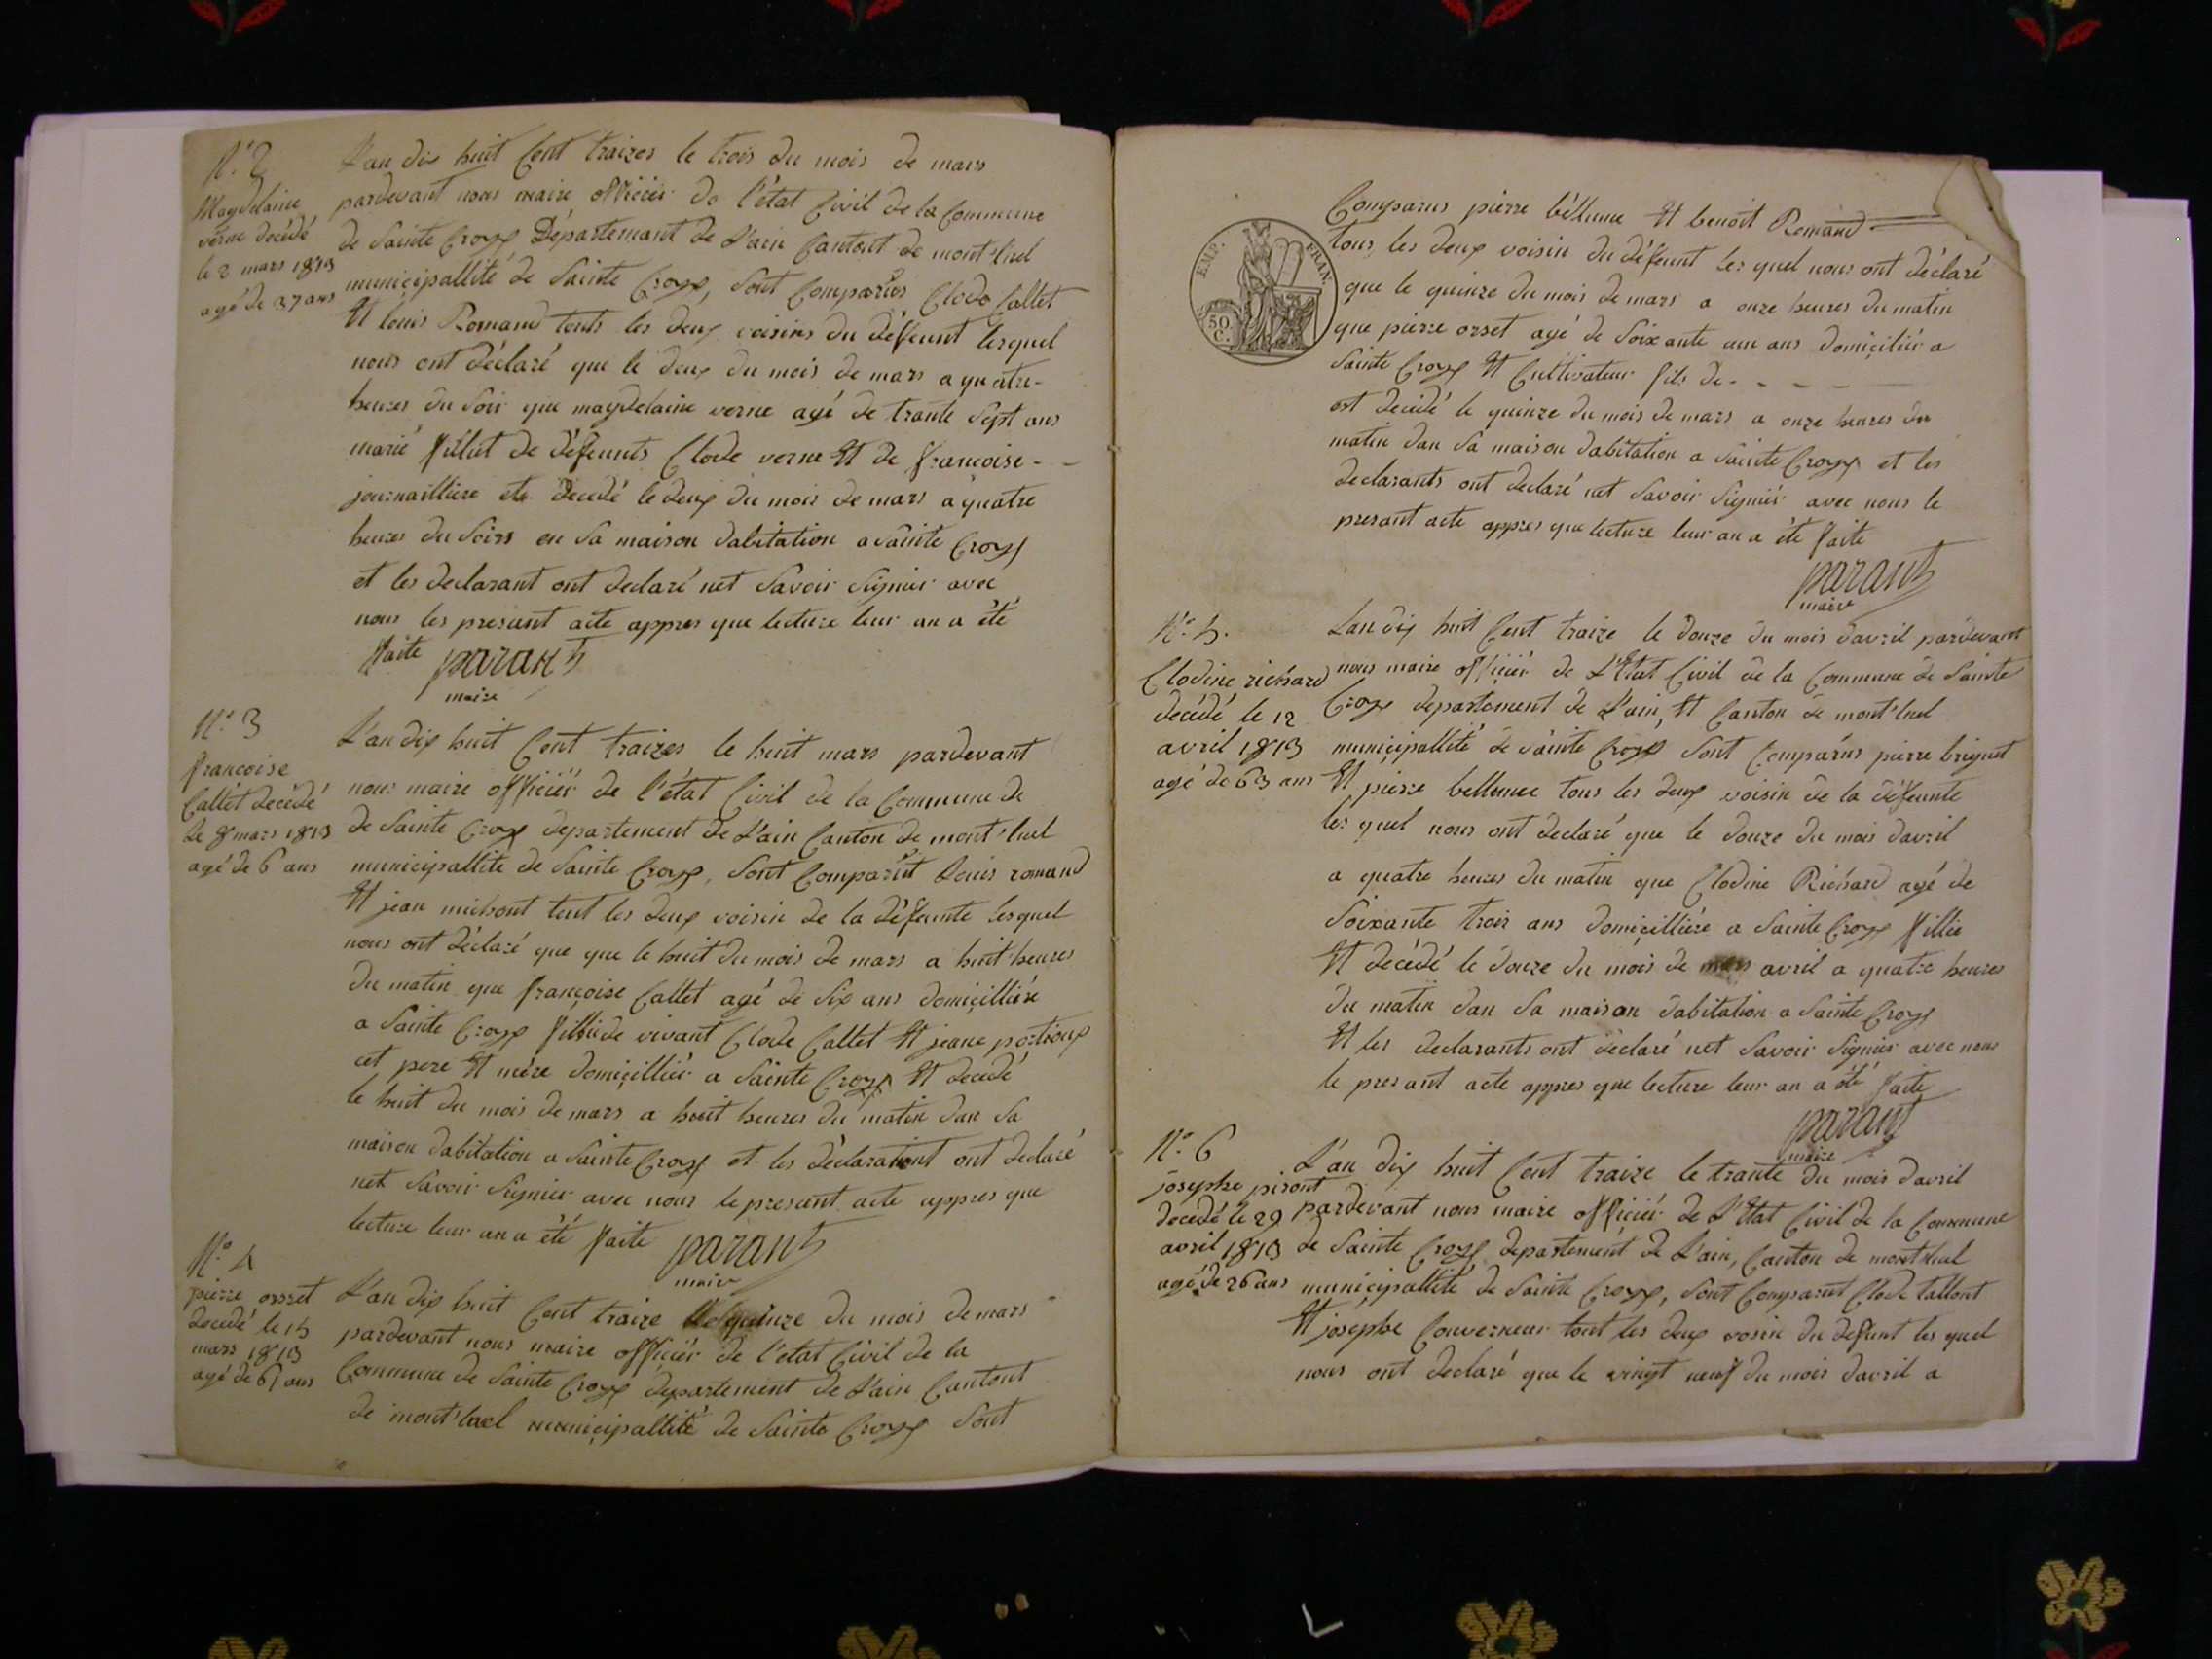 N.o 2
Magdelaine
verne décédé
le 2 mars 1813
agé de 37 ans
L'an dix huit Cent traizes le trois du mois de mars
pardevant nous maire officiér de l'état Civil de la Commune
de Sainte Croyx Département de L'ain Cantont de mont'luel
municipallité de Sainte Croyx, Sont Comparus Clode Callet
Et louis Romand touts les deux voisins du défeunt lesquel
nous ont déclaré que le deux du mois de mars a quatre-
heures du soir que magdelaine verne agé de trante Sept ans
marié fillut de défeunts Clode verne Et de françoise - -
journailliere ete decedé le deux du mois de mars a quatre
heures du Soirs en Sa maison dabitation a Sainte Croyx
et les declarant ont declaré net Savoir Signier avec
nous les presant acte appres que lecture leur an a été
faite parant
maire
N.o 3
françoise
Callet decédé
le 8 mars 1813
agé de 6 ans
L'an dix huit Cent traizes le huit mars pardevant
nous maire officiér de l'état Civil de la Commune de
de Sainte Croyx departement de L'ain Canton de mont'luel
municipallité de Sainte Croyx, Sont Comparut Louis romand
Et jean michont tout les deux voisin de la défeunte lesquel
nous ont déclaré que que le huit du mois de mars a huit heures
du matin que françoise Callet agé de Six ans domiçilliére
a Sainte Croyx fillie de vivant Clode Callet Et jeane portioux
cet pere Et mére domiçilliér a Sainte Croyx Et decedé
le huit du mois de mars a huit heures du matin dan Sa
maison dabitation a Sainte Croyx et les déclarationt ont declaré
net Savoir Signier avec nous le presant acte appres que
lecture leur an a été faite parant
maire
N.o 4
pierre orsset
decedé le 15
mars 1813
agé de 61 ans
L'an dix huit Cent traize le quinze du mois de mars
pardevant nous maire officiér de l'etat Civil de la
Commune de Sainte Croyx département de L'ain Cantont
de mont'luel municipallité de Sainte Croyx Sont
EMP. FRAN.
50
C.
Comparus pierre béllume Et benoit Romand
tous les deux voisin du défeunt les quel nous ont déclaré
que le quinze du mois de mars a onze heures du matin
que pierre orset agé de Soixante aun ans domiçiliér a
Sainte Croyx Et Cultivateur fils de - - - -
est decédé le quinze du mois de mars a onze heures du
matin dan Sa maison dabitation a Sainte Croyx et les
declarants ont declaré net Savoir Signiér avec nous le
presant acte appres que lecture leur an a été faite
parant
maire
N.o 5.
Clodine richard
décédé le 12
avril 1813
agé de 63 ans
Lan dix huit Cent traize le douze du mois davril pardevant
nous maire officiér de L'Etat Civil de la Commune de Sainte
Croyx departement de L'ain, Et Canton de mont'luel
municipallité de Sainte Croyx Sont Comparus pierre briguet
Et pierre bellumee tous les deux voisin de la défeunte
les quel nous ont declaré que le douze du mois davril
a quatre heures du matin que Clodine Richard agé de
Soixante trois ans domiçilliére a Sainte Croyx fillie
Et décédé le douze du mois de mars avril a quatre heures
du matin dan Sa maison dabitation a Sainte Croyx
Et les declarants ont declaré net Savoir Signier avec nous
le presant acte appres que lecture leur an a été faite
parant
maire
N.o 6
josephe pisont
decedé le 29
avril 1813
agé de 26 ans
L'an dix huit Cent traize le trante du mois davril
pardevant nous maire officiér de L'Etat Civil de la Commune
de Sainte Croyx departement de L'ain, Canton de mont'luel
municipallité de Sainte Croyx, Sont Comparut Clode tallont
Et josephe Couverneur tout les deux vosin du defunt les quel
nous ont declaré que le vingt neuf du mois davril a